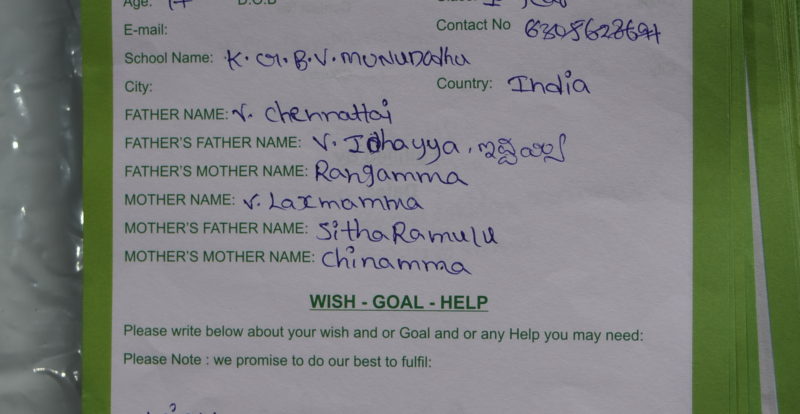 Age: 17 D.O.B
E-mail: Contact No
School Name: K.G.B.V. Munudodhu
City: Country: India
FATHER NAME: V. Chennattai
FATHER'S FATHER NAME: V. Idhayya,
FATHER'S MOTHER NAME: Rangamma
MOTHER NAME: V. Laxmamma
MOTHER'S FATHER NAME: SithaRamulu
MOTHER'S MOTHER NAME: Chinamma
WISH - GOAL - HELP
Please write below about your wish and or Goal and or any Help you may need:
Please Note : we promise to do our best to fulfil: